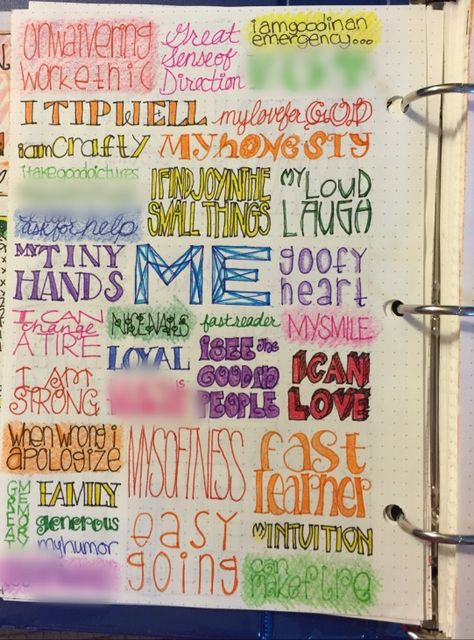 unwaivering
work ethic
Great
Sense of
Direction
i am good in an
emergency...
I TIP WELL
my love for GOD
i am crafty
MY hONESTY
i take good pictures
I FIND JOY IN THE
SMALL THINGS
MY LOUD
LAUGH
ask for help
MY TINY
HANDS
ME
goofy
heart
I CAN
change
A TIRE
fast reader
MY SMILE
LOYAL
I SEE the
GOOD IN
PEOPLE
I CAN
LOVE
I AM
STRONG
is
when wrong i
apologize
MY SOFTNESS
fast
learner
GREAT
MEMORY
FAMILY
generous
my humor
easy
going
MY INTUITION
can
make fire